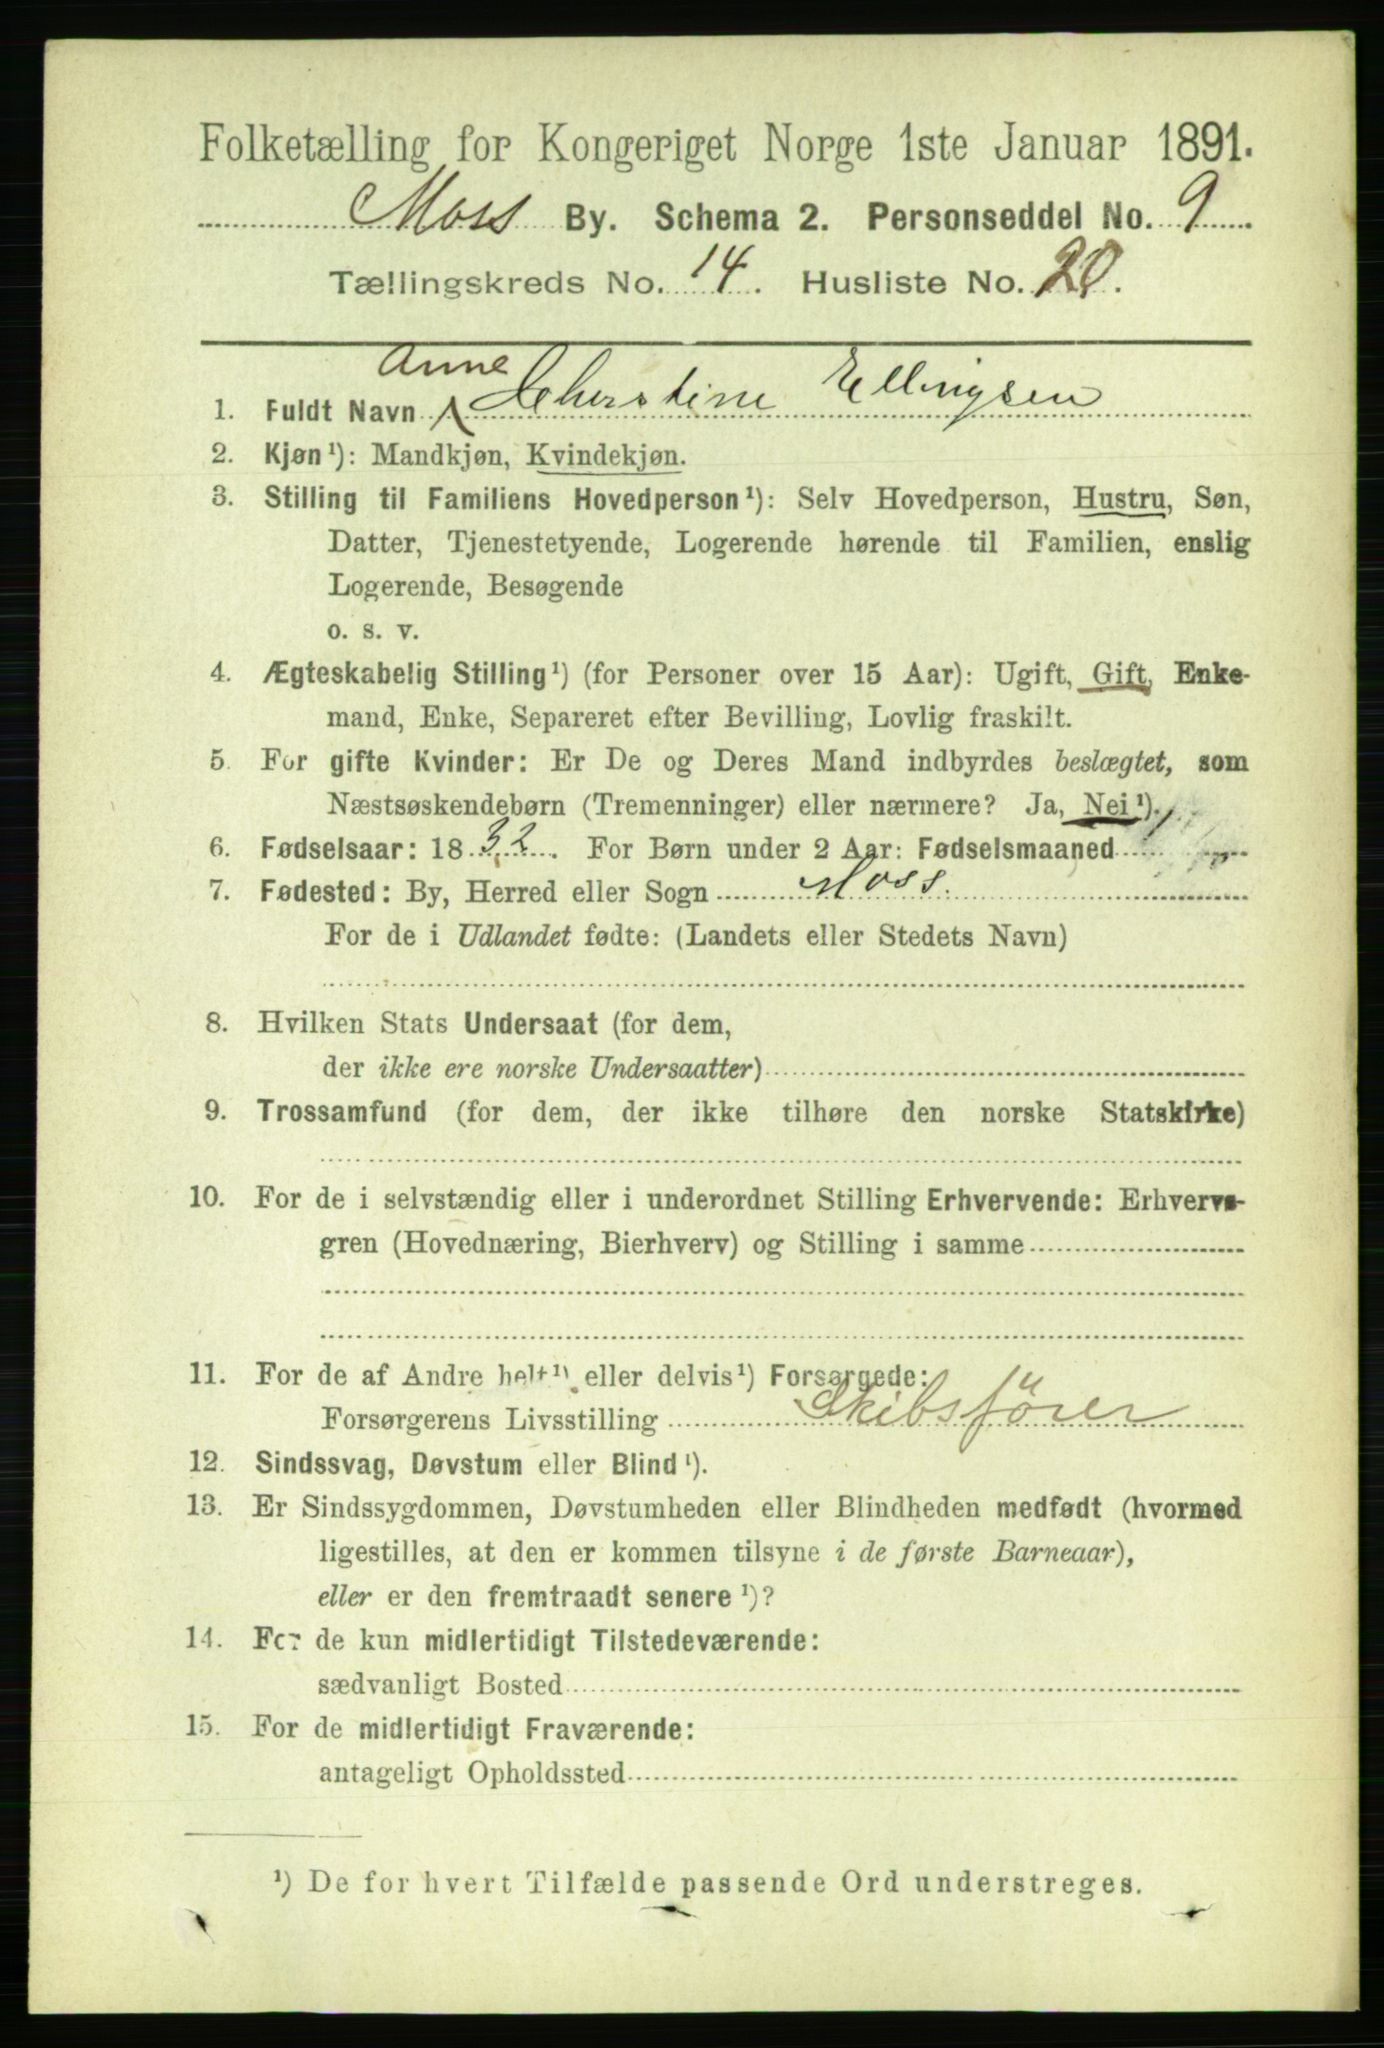 Folketælling for Kongeriget Norge 1ste Januar 1891.
Moss By. Schema 2. Personseddel No. 9
Tællingskreds No. 14. Husliste No. 20.
Anne
1. Fuldt Navn Cherstine Ellingsen
2. Kjøn¹): Mandkjøn, Kvindekjøn.
3. Stilling til Familiens Hovedperson¹): Selv Hovedperson, Hustru, Søn,
Datter, Tjenestetyende, Logerende hørende til Familien, enslig
Logerende, Besøgende
o. s. v.
4. Ægteskabelig Stilling¹) (for Personer over 15 Aar): Ugift, Gift, Enke-
mand, Enke, Separeret efter Bevilling, Lovlig fraskilt.
5. For gifte Kvinder: Er De og Deres Mand indbyrdes beslægtet, som
Næstsøskendebørn (Tremenninger) eller nærmere? Ja, Nei¹).
6. Fødselsaar: 1832. For Børn under 2 Aar: Fødselsmaaned
7. Fødested: By, Herred eller Sogn Moss.
For de i Udlandet fødte: (Landets eller Stedets Navn)
8. Hvilken Stats Undersaat (for dem,
der ikke ere norske Undersaatter)
9. Trossamfund (for dem, der ikke tilhøre den norske Statskirke)
10. For de i selvstændig eller i underordnet Stilling Erhvervende: Erhvervs-
gren (Hovednæring, Bierhverv) og Stilling i samme
11. For de af Andre helt¹) eller delvis¹) Forsørgede:
Forsørgerens Livsstilling Skibsförer
12. Sindssvag, Døvstum eller Blind¹).
13. Er Sindssygdommen, Døvstumheden eller Blindheden medfødt (hvormed
ligestilles, at den er kommen tilsyne i de første Barneaar),
eller er den fremtraadt senere¹)?
14. For de kun midlertidigt Tilstedeværende:
sædvanligt Bosted
15. For de midlertidigt Fraværende:
antageligt Opholdssted
¹) De for hvert Tilfælde passende Ord understreges.